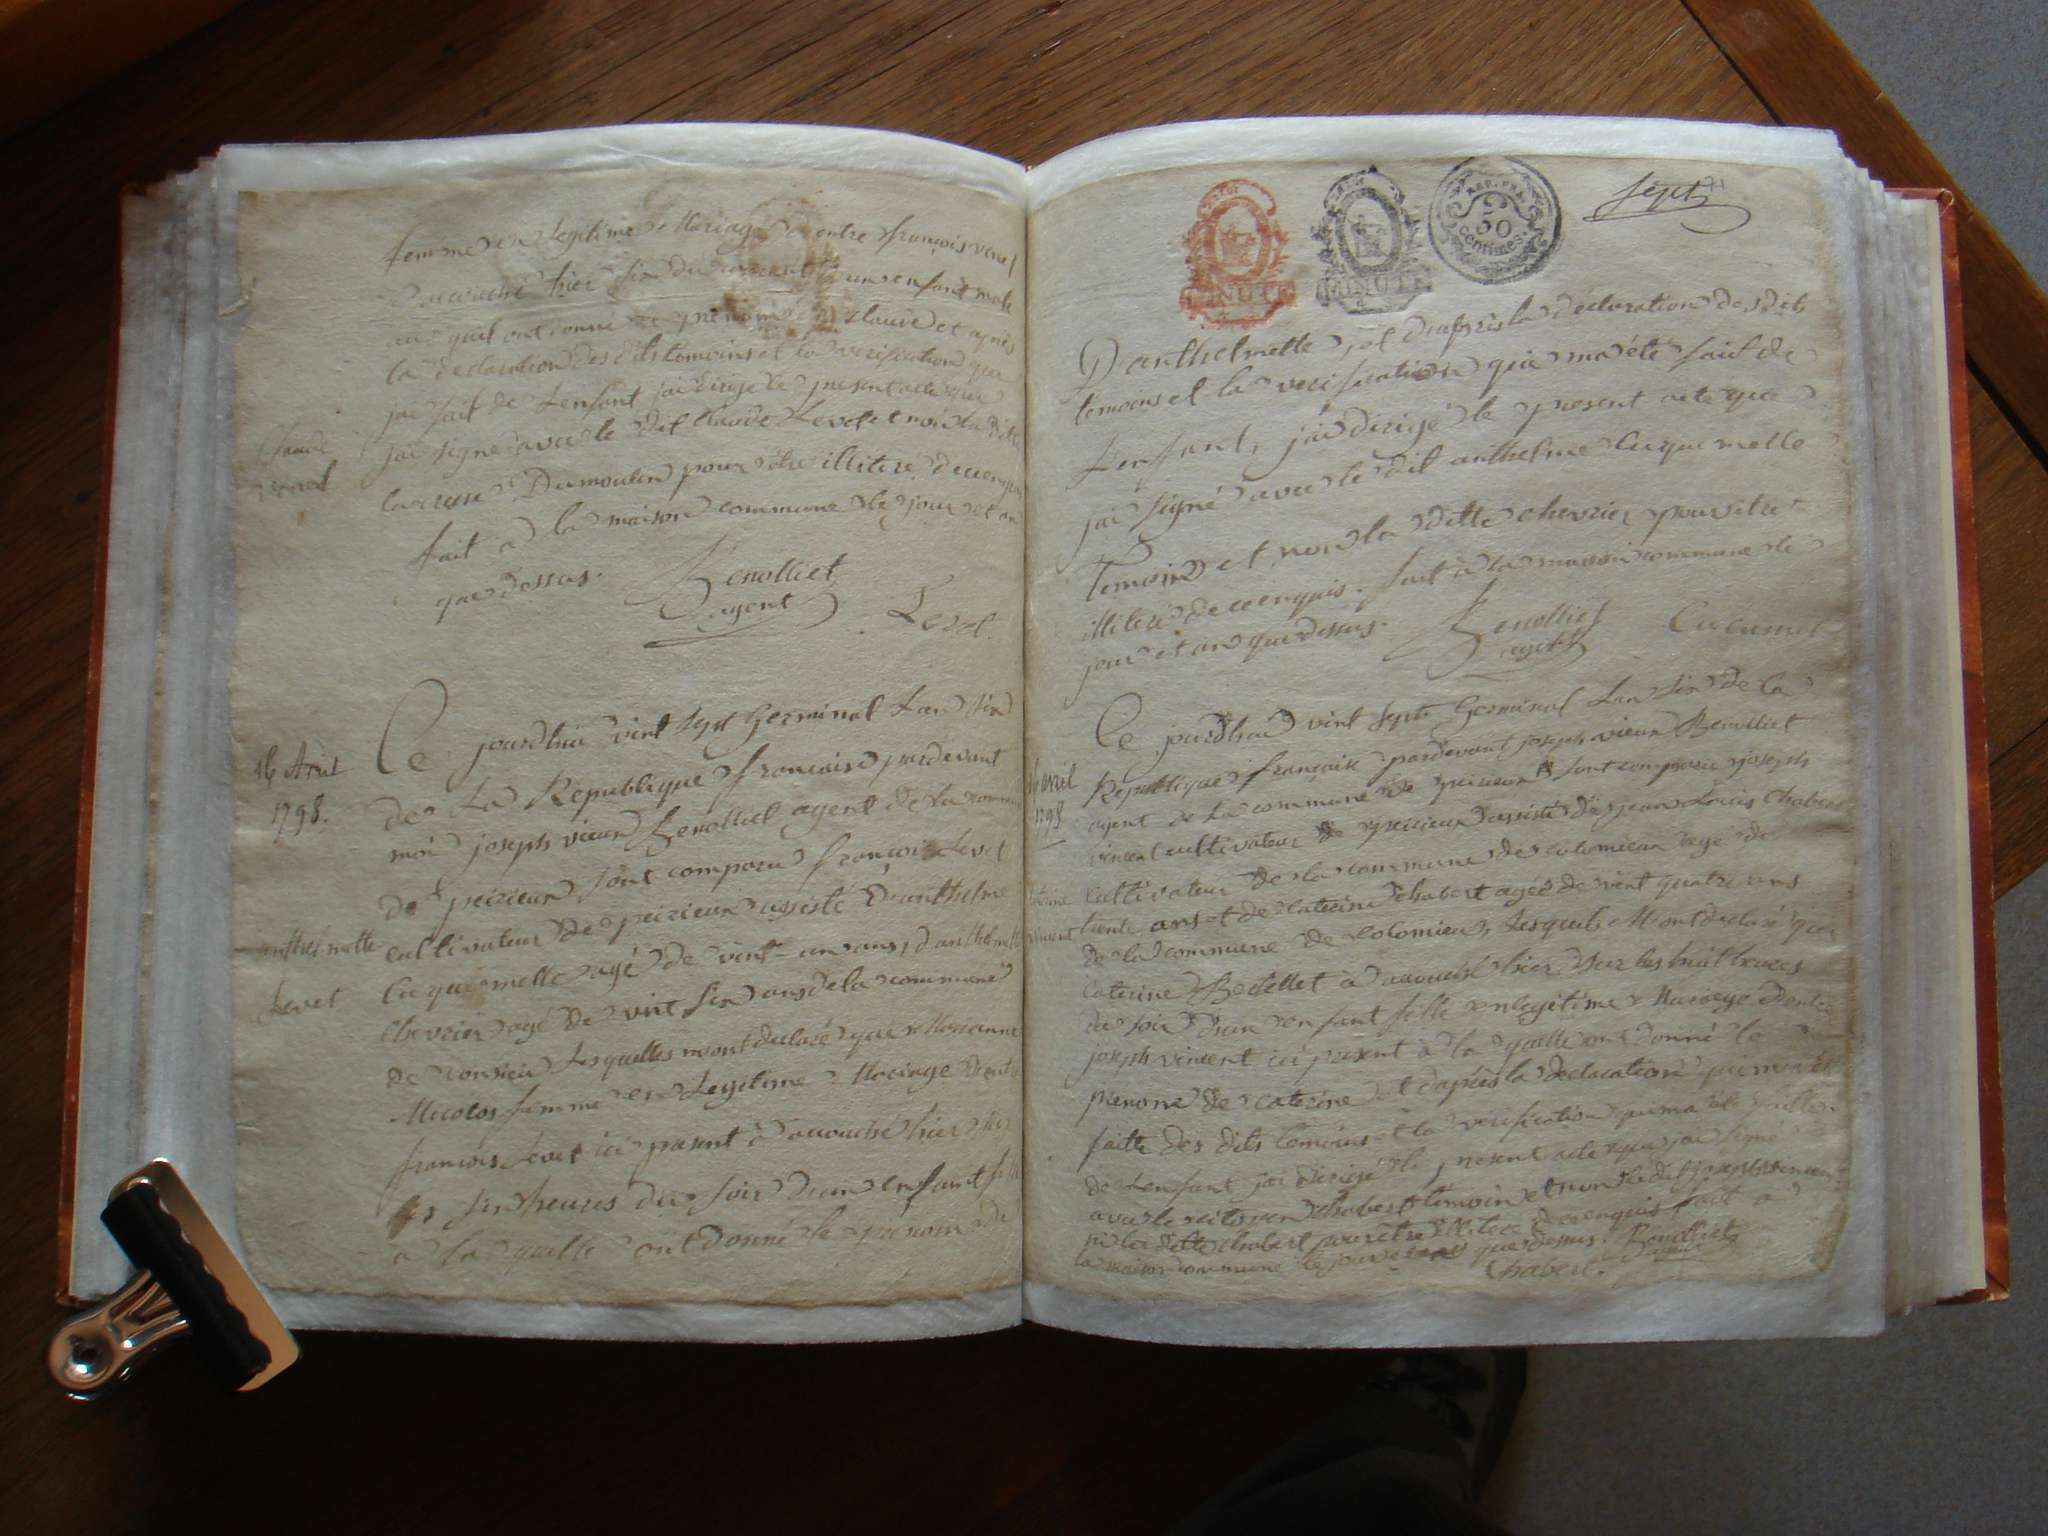 femme en Legitime Mariage d entre françois venet
accouché hier six du courant d un enfant male
au quil ont donné le prénom de Claude et après
la declaration des dits temoins et la verification que
jai fait de Lenfant jai dirigé le present acte que
jai signé avec le dit Claude Levet et non la ditte
Dumoulin pour être illitere de ce enquis
fait a la maison commune le jour et an
que dessus.
Benolliet
agent
Levet
Claude
venet
Ce jourdhui vint sept Germinal Lan six
de La Republique françoise pardevant
moi joseph vieux Benolliet agent de La commune
de peizieux sont comparu françois Levet
cultivateur de peizieux assisté D anthelme
Cuquemelle agé de vint un ans, d anthelmette
Chevrier agé de vint six ans de la commune
de consieu Lesquelles mont declaré que Marianne
Micolos femme en Legitime Mariage d entre
françois Levet ici present à accouché hier sur
les six heures du soir d un enfant fille
a la quelle ont donné le prenom de
16 Avril
1798.
anthelmette
Levet
Sept
71
MINUTE
MINUTE
REP. FRA.
50
centimes.
D anthelmette, et d après la déclaration des dits
temoins et la verification qui ma été fait de
Lenfant, jai dirigé le present acte que
jai signé avec le dit anthelme Cuquemelle
Temoins et non la ditte chevrier pour etre
illiteré de ce enquis. fait à la maison commune le
jour et an que dessus.
Benolliet
agent
Cucumel
Ce jourdhui vint sept Germinal Lan six de la
Republique françoise pardevant joseph vieux Benolliet
agent de La commune de peizieux sont comparu joseph
vincent cultivateur de peizieux assisté de jean Louis Chabert
cultivateur de la commune de colomieu agé de
trente ans et de caterine chabert agée de vint quatre ans
de la commune de Colomieu, Lesquels Mont declaré que
caterine Betellet à accouché hier sur les huit heures
du soir d un enfant fille en legitime Mariage d entre
joseph vincent ici present à la quelle ont donné le
prenom de caterine et d après la declaration qui ma été
faitte des dits temoins et la verification qui ma été faitte
de Lenfant jai dirigé le present acte que jai signé
avec le citoyen chabert temoin et non le dit joseph vincent
ni la ditte chabert pour être illitere de ce enquis fait a
la maison commune le jour et an que dessus. Benolliet
Chabert.
avril
1798
vincent